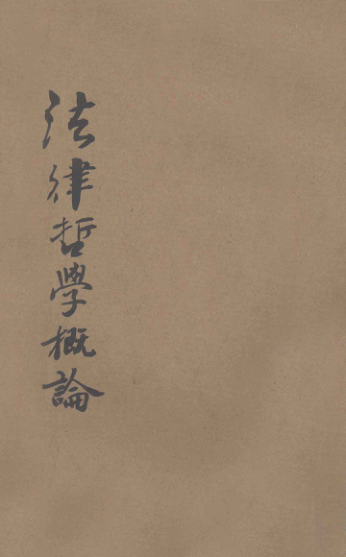 法律哲學概論